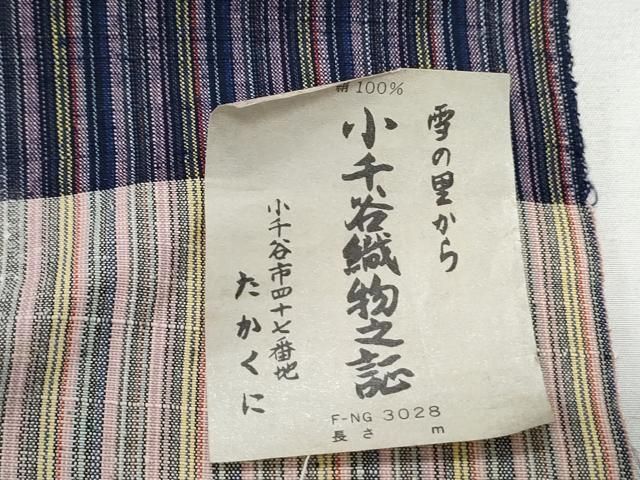 絹 100%
雪の里から
小千谷織物之証
小千谷市四十七番地
たかくに
F-NG 3028
長さ m